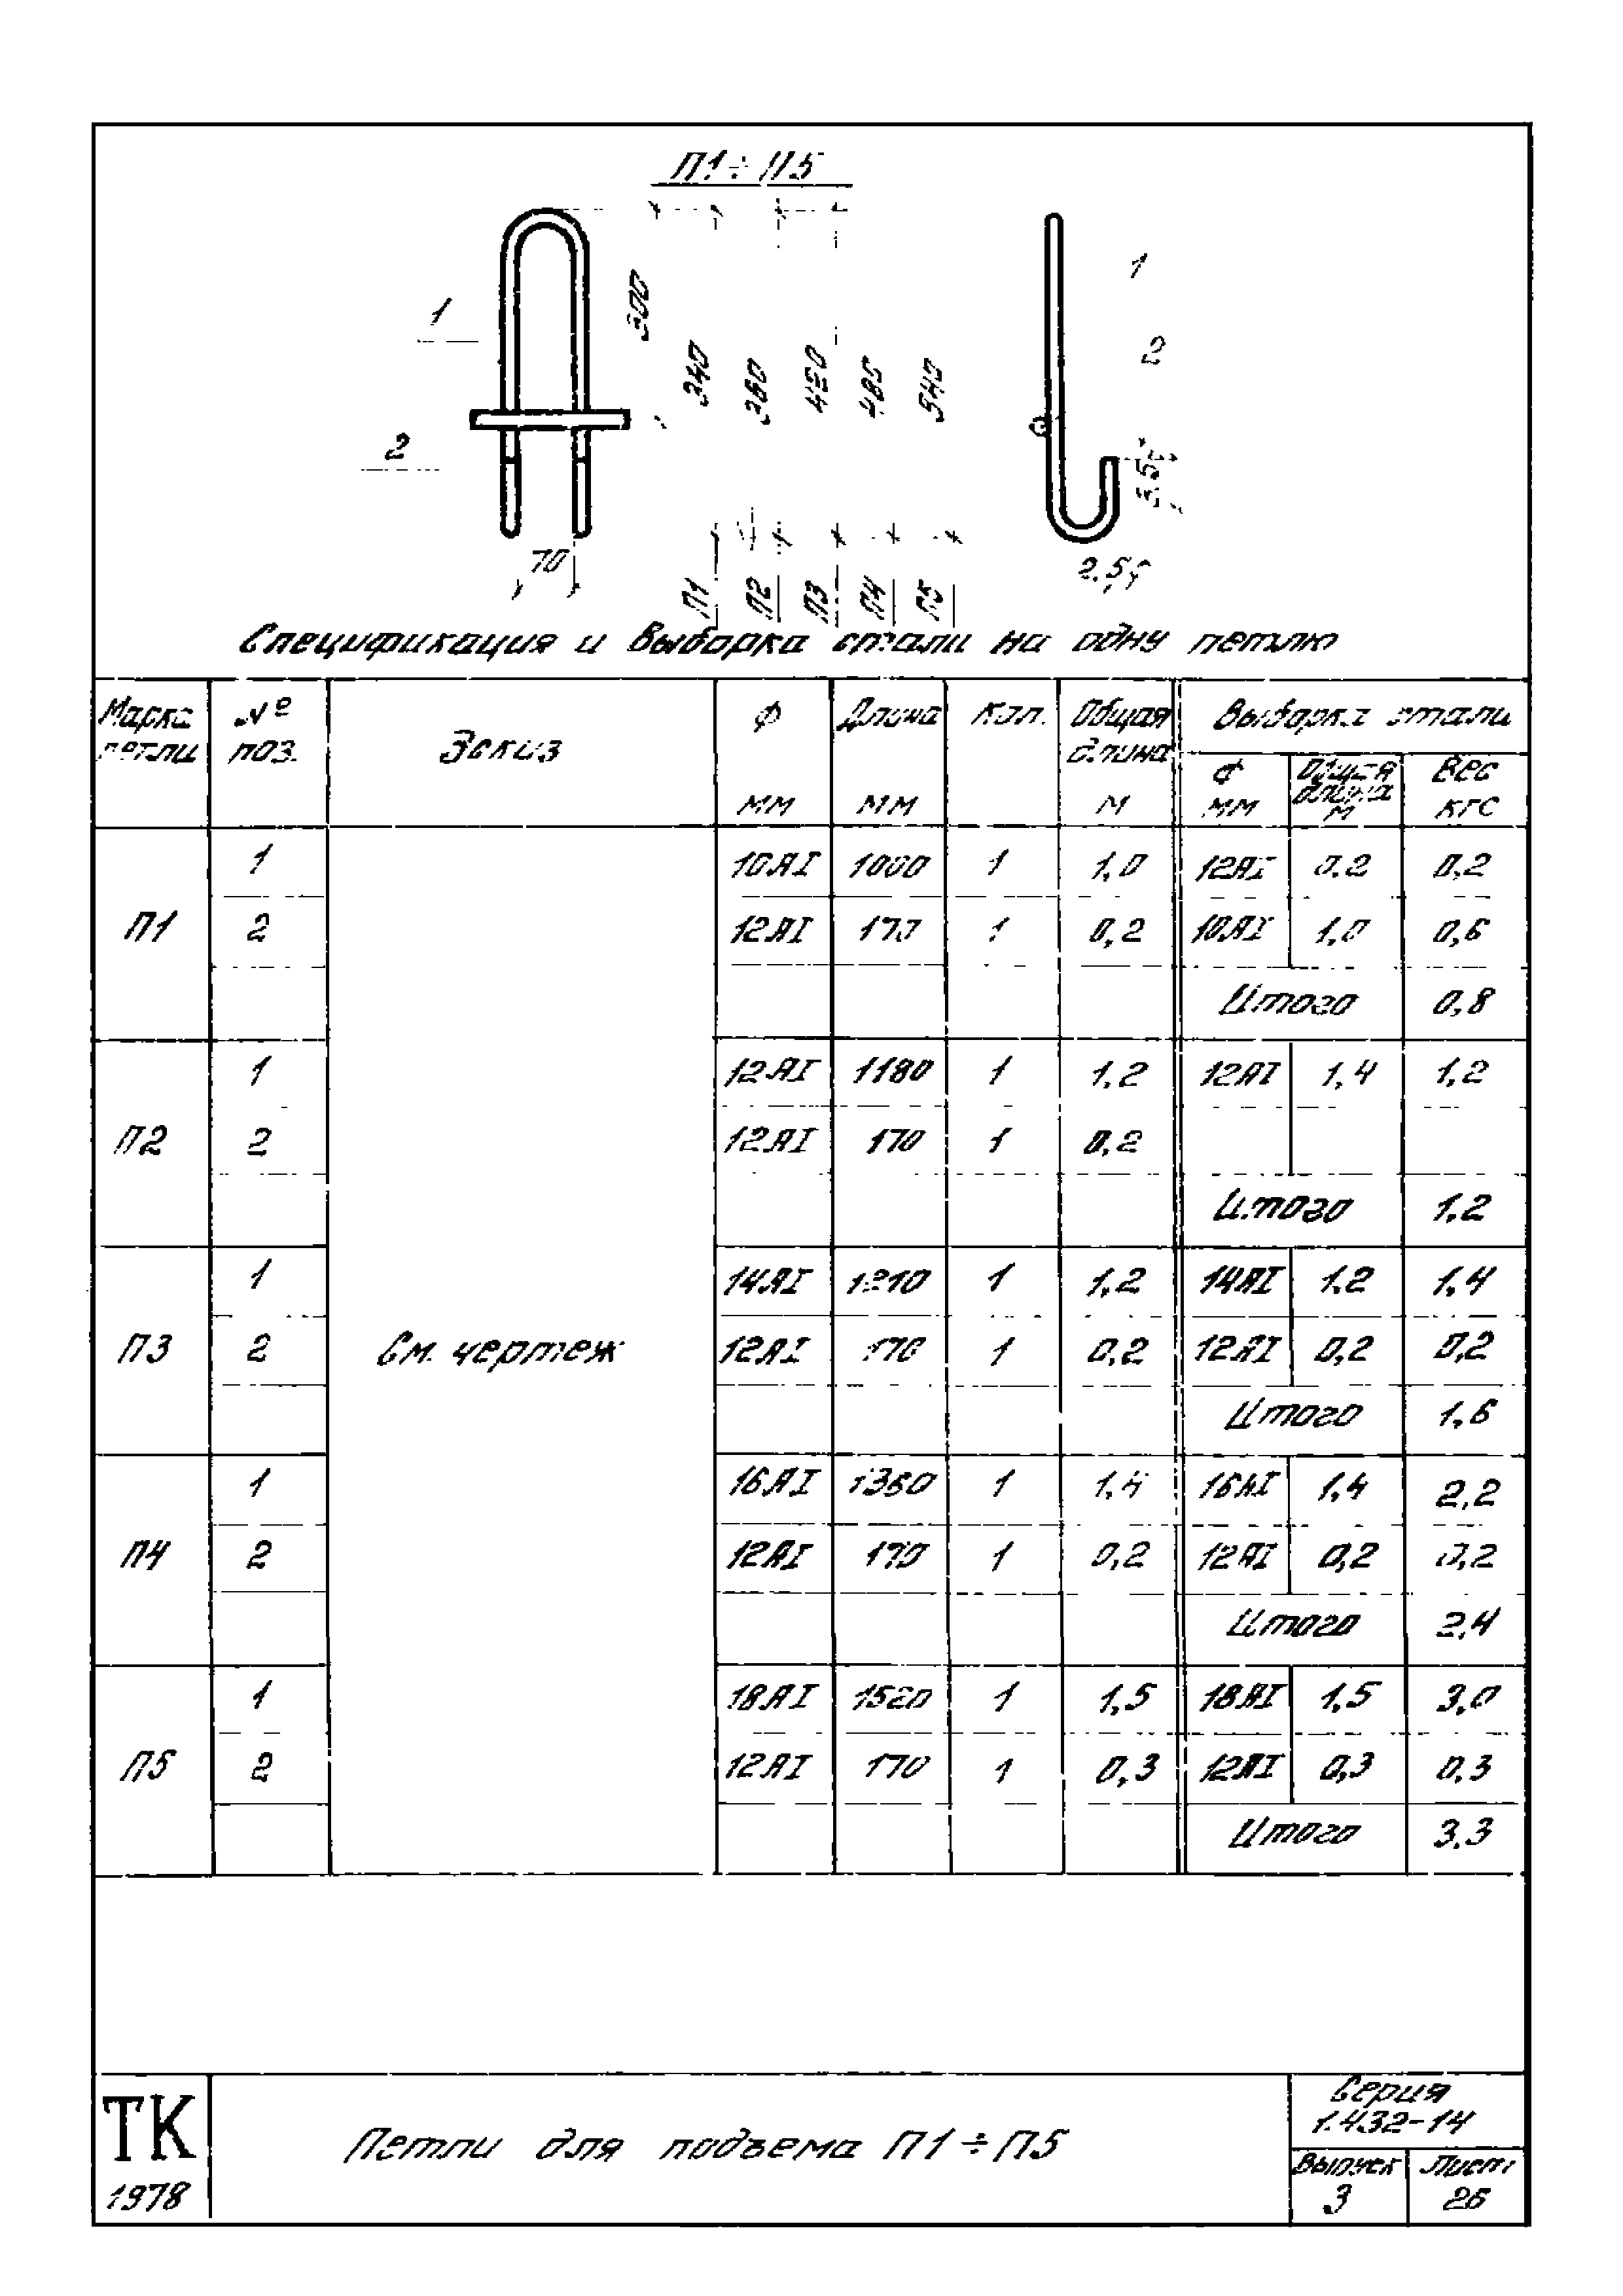 П1÷П5
1
300
1
2
340
380
485
540
2
70
П1
П2
П3
П4
П5
Спецификация и выборка стали на одну петлю
Марка петли
№ поз.
Эскиз
Ф мм
Длина мм
Кол.
Общая длина м
Выборка стали
Ф мм
Общая длина м
Вес кгс
П1
1 10АI 1000 1 1,0 12АI 0,2 0,2
2 12АI 170 1 0,2 10АI 1,0 0,6
Итого 0,8
П2
1 12АI 1180 1 1,2 12АI 1,4 1,2
2 12АI 170 1 0,2
Итого 1,2
П3
См. чертеж
1 14АI 1210 1 1,2 14АI 1,2 1,4
2 12АI 170 1 0,2 12АI 0,2 0,2
Итого 1,6
П4
1 16АI 1360 1 1,4 16АI 1,4 2,2
2 12АI 170 1 0,2 12АI 0,2 0,2
Итого 2,4
П5
1 18АI 1520 1 1,5 18АI 1,5 3,0
2 12АI 170 1 0,3 12АI 0,3 0,3
Итого 3,3
ТК
1978
Петли для подъема П1÷П5
Серия
1.432-14
Выпуск
3
Лист
26